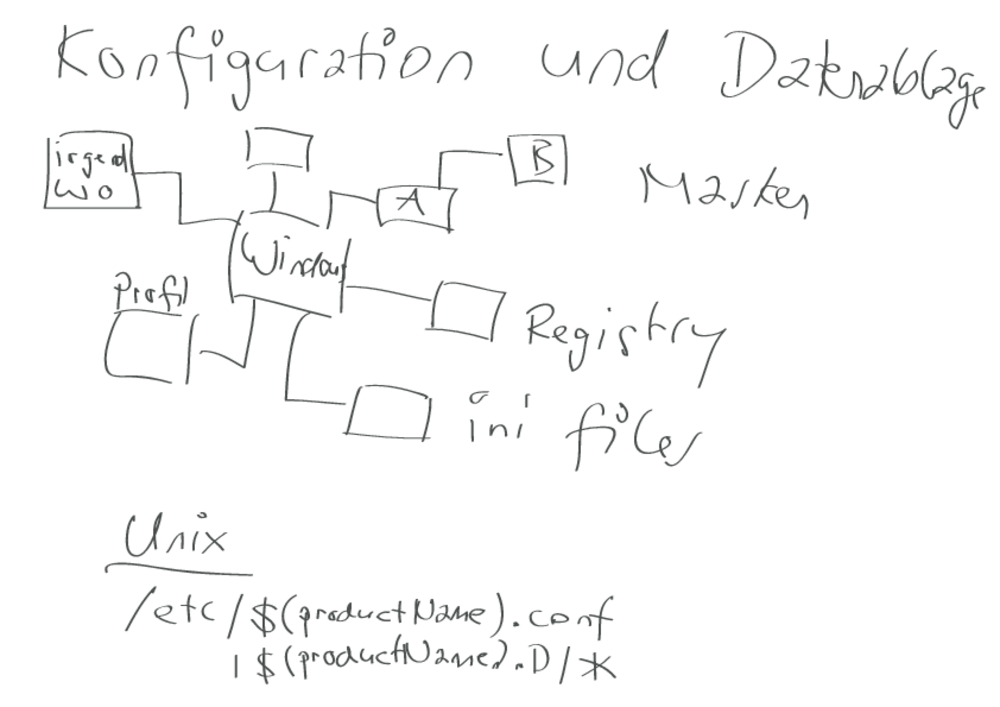 Konfiguration und Datenablage
irgend
wo
B
A
Masken
Windows
Profil
Registry
ini files
Unix
/etc/$(productName).conf
| $(productName).D/*